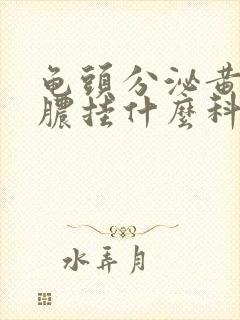 龟頭分泌黃
膿挂什麽科
水弄月